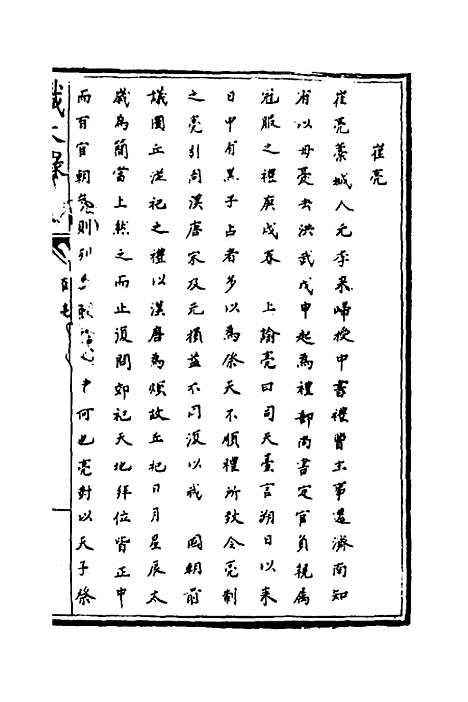 崔亮
崔亮藁城人元季来歸授中書禮曹主事遷濟南知
府以母憂去洪武戊申起為禮部尚書定官員親屬
冠服之禮庚戌春　上諭亮曰司天臺言朔日以来
日中有黑子占者多以為祭天不順禮所致令亮制
之亮引周漢唐宋及元損益不同復以我　國朝前
議圜丘從祀之禮以漢唐為煩故丘祀日月星辰太
歳為簡當上然之而止復問郊祀天地拜位皆正中
而百官朝參則列班 何也亮對以天子祭